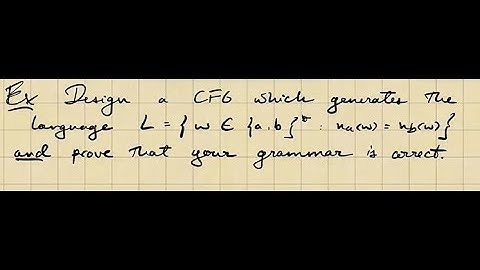 Ex Design a CFG which generates the
language L = { w ∈ {a,b}* : na(w) = nb(w) }
and prove that your grammar is correct.